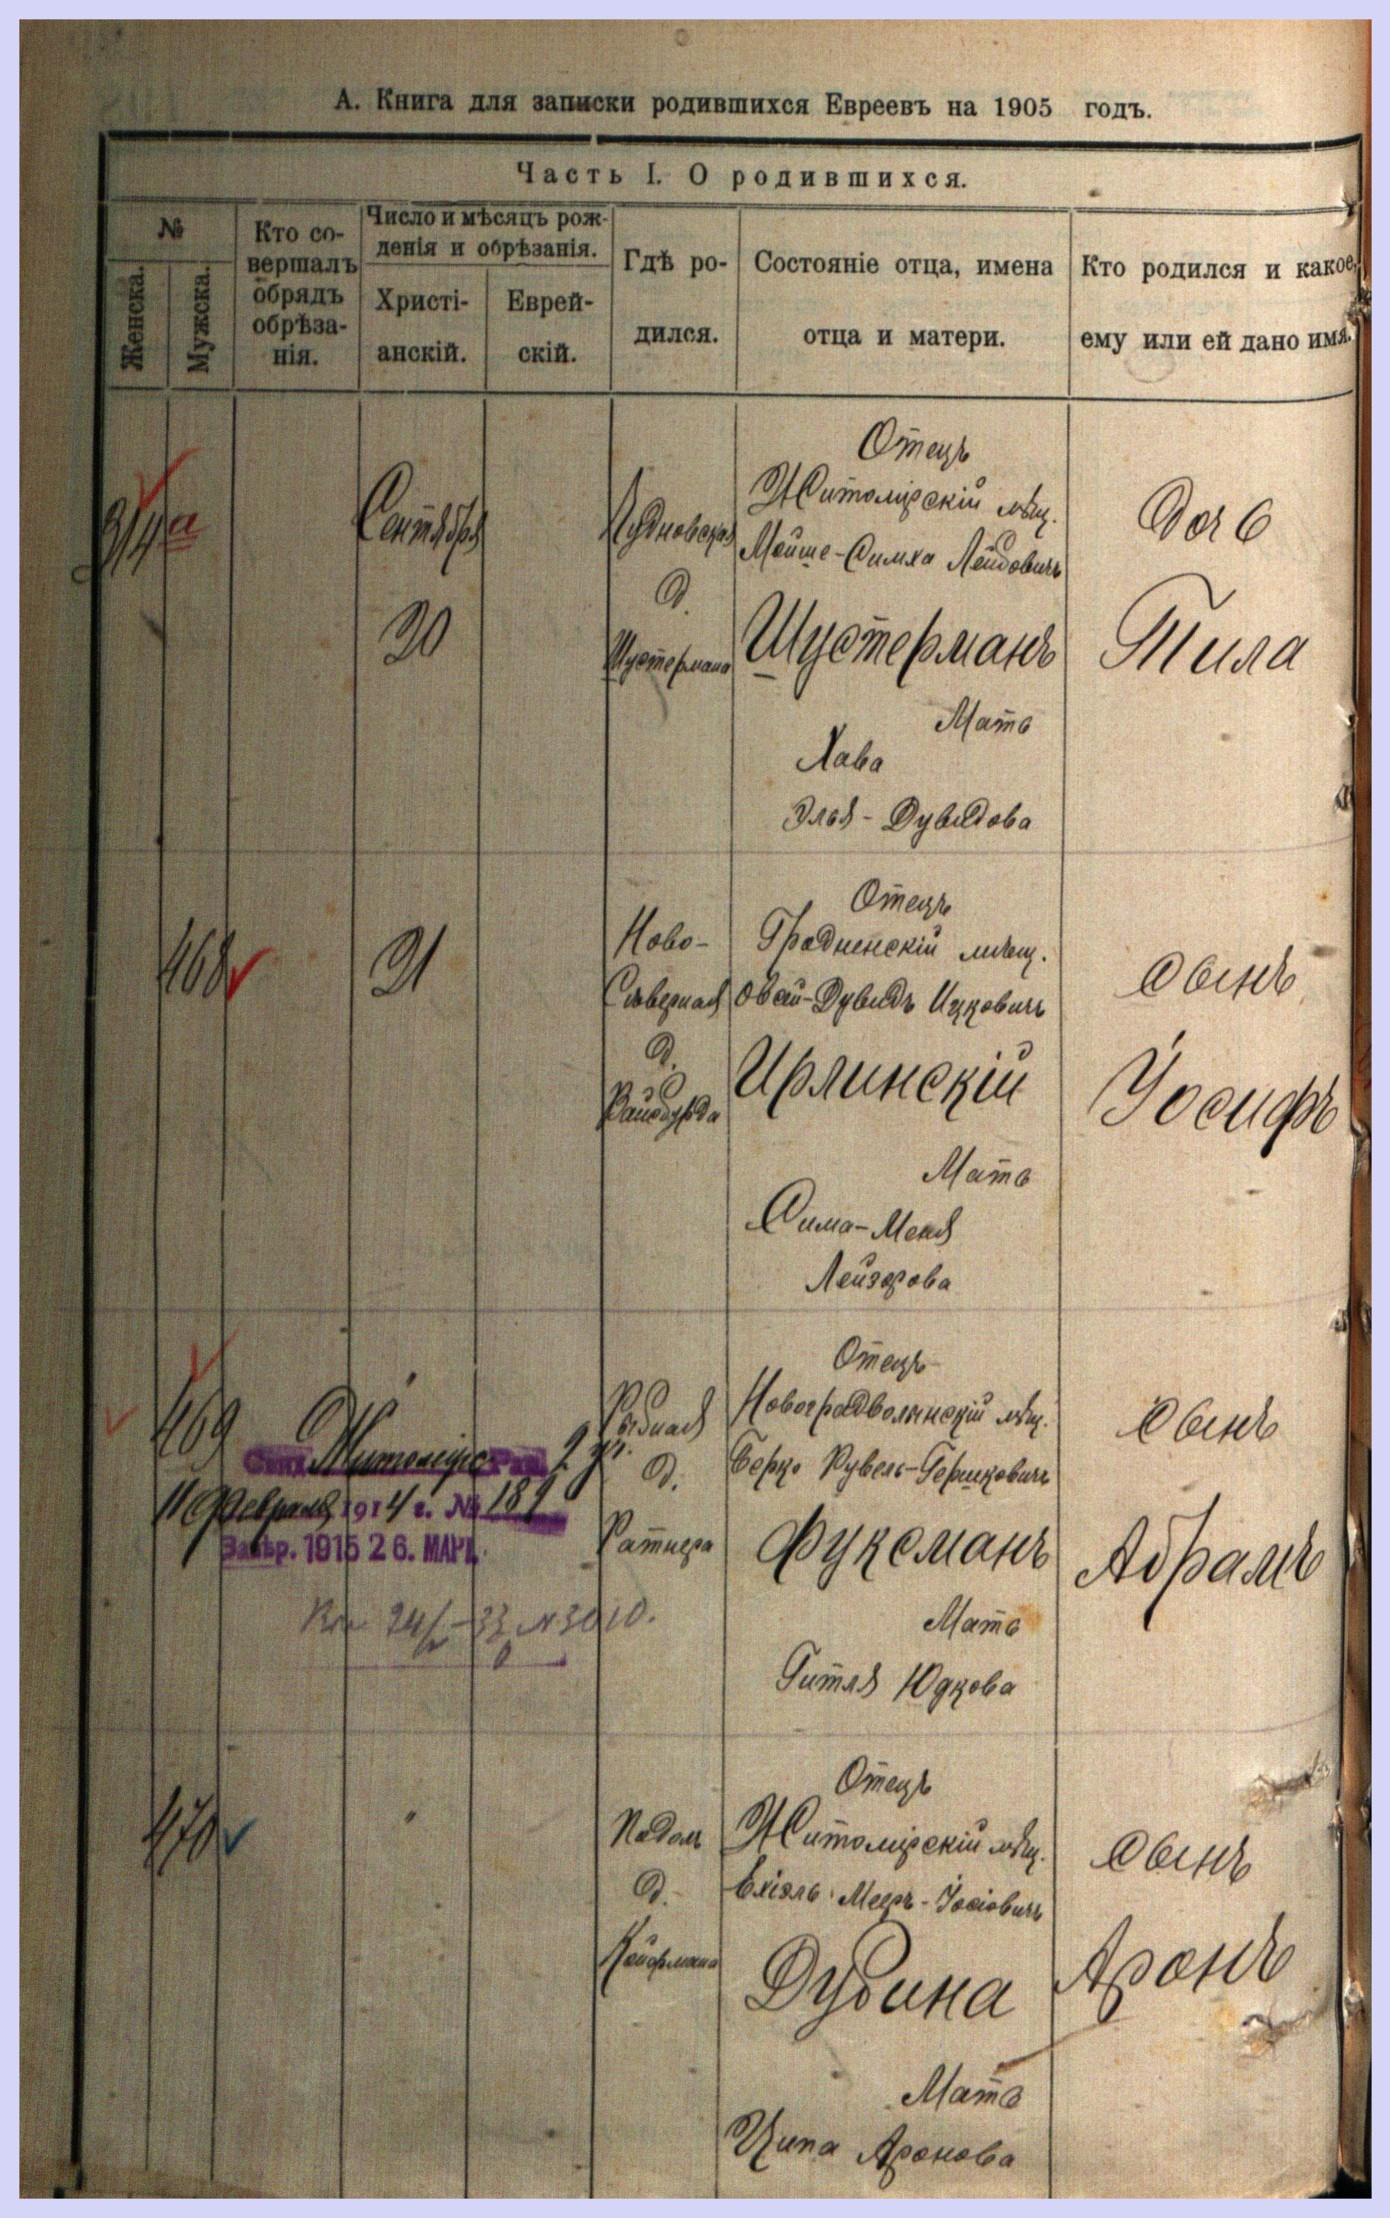 А. Книга для записки родившихся Евреевъ на 1905 годъ.
Часть I. О родившихся.
№
Женска.
Мужска.
Кто со-
вершалъ
обрядъ
обрѣза-
нія.
Число и мѣсяцъ рож-
денія и обрѣзанія.
Христі-
анскій.
Еврей-
скій.
Гдѣ ро-
дился.
Состояніе отца, имена
отца и матери.
Кто родился и какое,
ему или ей дано имя.
314а
Сентября
20
Чудновская
д.
Шустермана
Отецъ
Житомірскій мѣщ.
Мойше-Симха Лейбовичъ
Шустерманъ
Мать
Хава
Элья-Дувидова
Дочь
Тила
468
21
Ново-
Сѣверная
д.
Вайсбурда
Отецъ
Гродненскій мѣщ.
Овсей-Дувидъ Ицковичъ
Ирлинскій
Мать
Сима-Меня
Лейзорова
Сынъ
Іосифъ
469
"
Свид. Житомірс. Рав.
11 Февраля 1914 г. № 189
Завѣр. 1915 26. МАРТ.
24/ -33 № 3010.
Рыбная
д.
Ратнера
Отецъ
Новоградволынскій мѣщ.
Берко Рувель-Гершковичъ
Фуксманъ
Мать
Гитля Юдкова
Сынъ
Абрамъ
470
"
Подолъ
д.
Койфмана
Отецъ
Житомірскій мѣщ.
Ехіэль Мееръ-Іосіовичъ
Дубина
Мать
Ципа Аронова
Сынъ
Аронъ